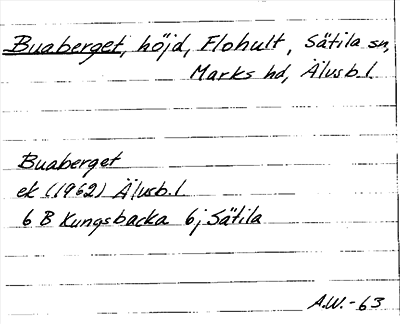 Buaberget, höjd, Flohult, Sätila sn,
Marks hd, Älvsb.l.
Buaberget
ek (1962) Älvsb.l
6 B Kungsbacka 6j Sätila
A.W.-63